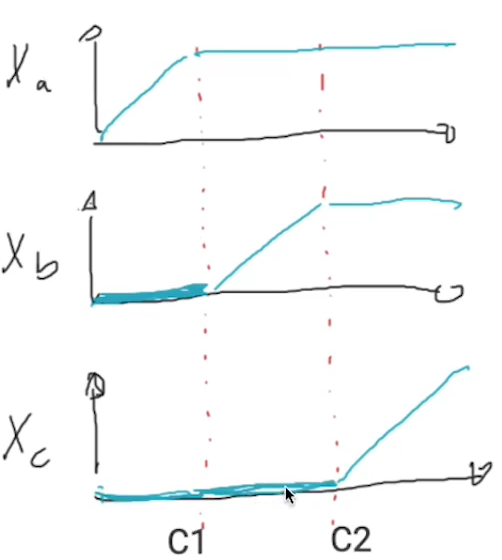 Xa
Xb
Xc
C1 C2